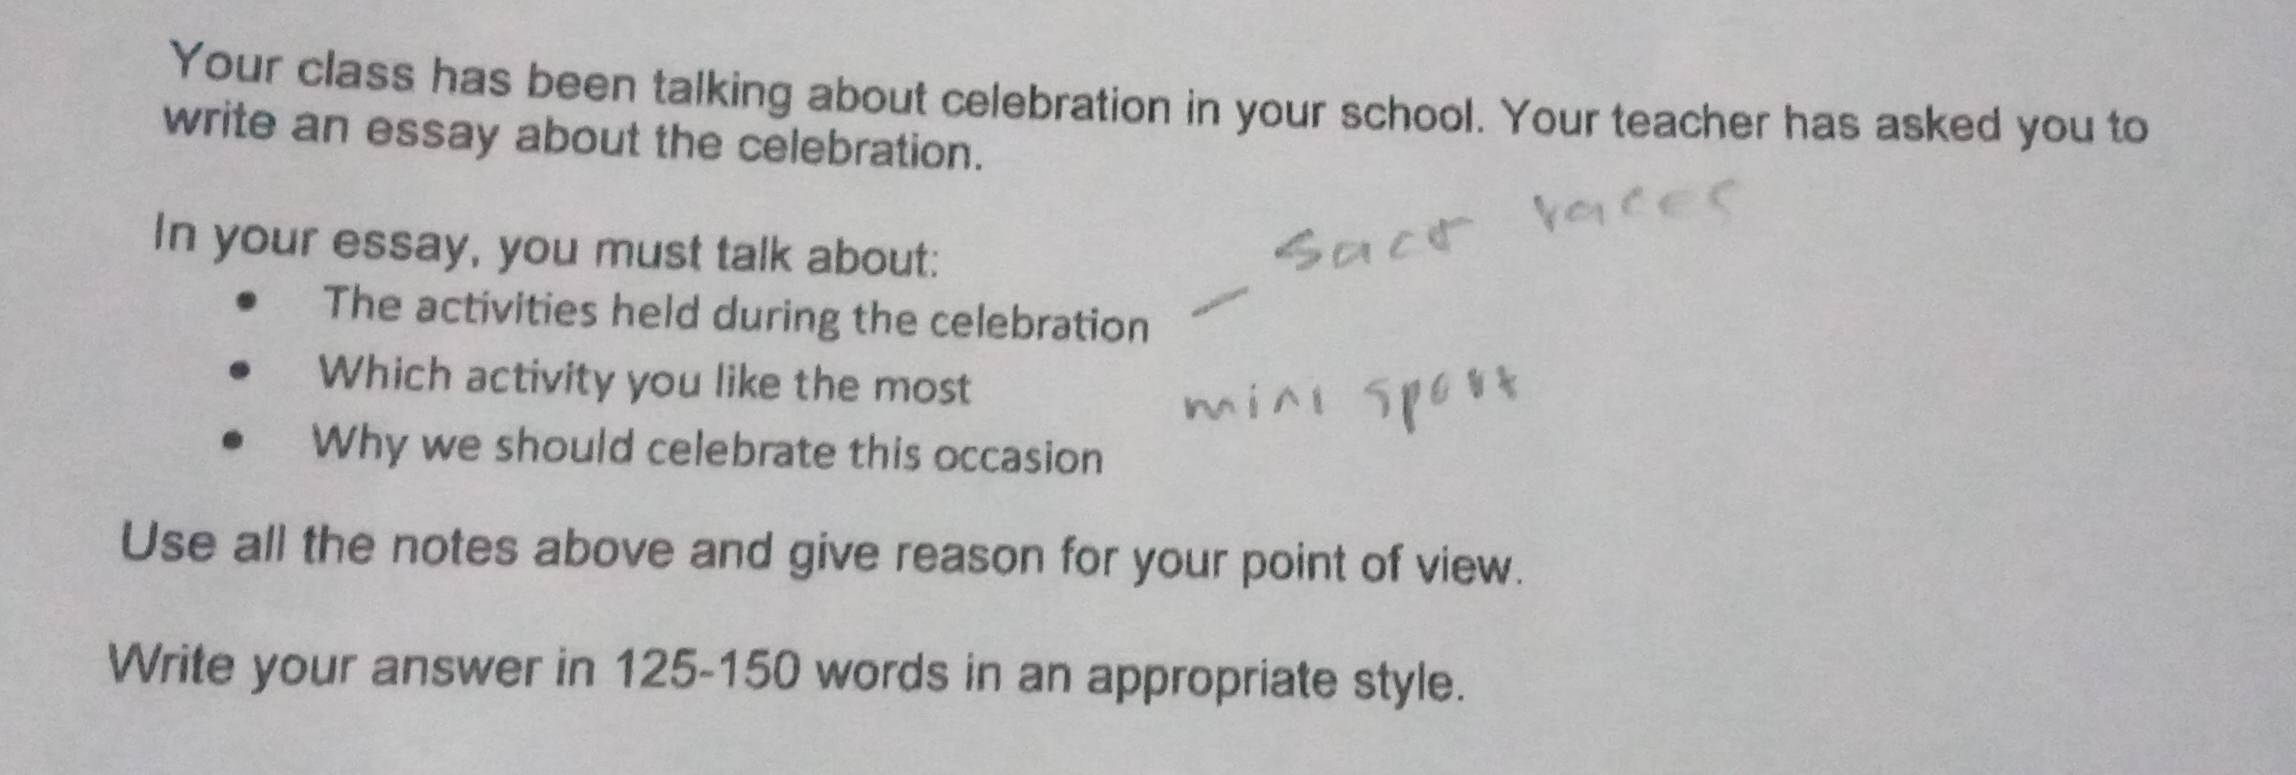 Your class has been talking about celebration in your school. Your teacher has asked you to
write an essay about the celebration.
In your essay, you must talk about:
sack races
• The activities held during the celebration –
• Which activity you like the most
mini sport
• Why we should celebrate this occasion
Use all the notes above and give reason for your point of view.
Write your answer in 125-150 words in an appropriate style.